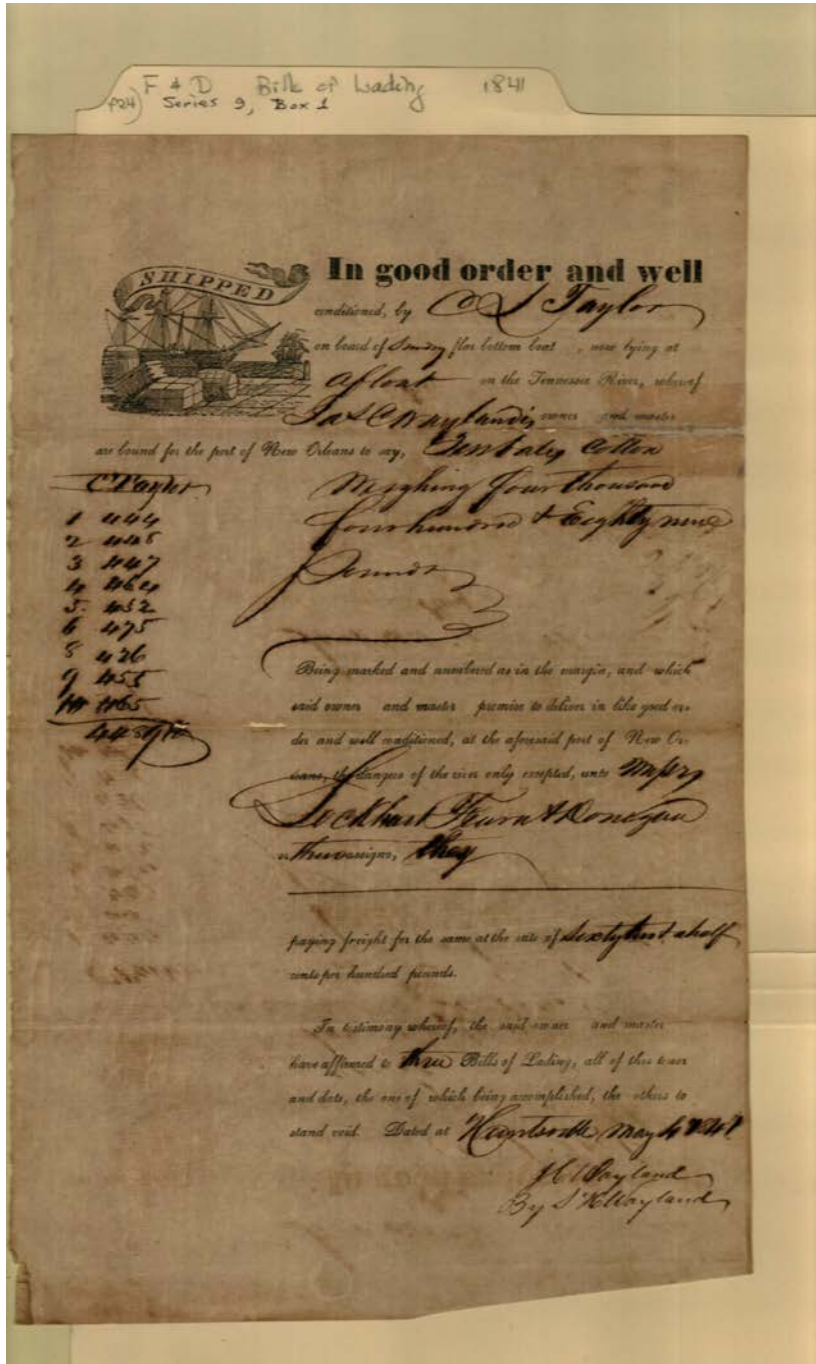 F & D Bills of Lading 1841
P24) Series 9, Box 1
SHIPPED
In good order and well
conditioned, by C L Taylor
on board of flat bottom boat, now lying at
afloat on the Tennessee River, whereof
Jas C Wayland is owner and master
are bound for the port of New Orleans to say, Ten bales Cotton
C Taylor
1 444
2 448
3 447
4 464
5 452
6 475
8 426
9 455
10 465
4489
Weighing four thousand
four hundred & Eighty nine
Pounds
Being marked and numbered as in the margin, and which
said owner and master promise to deliver in like good or-
der and well conditioned, at the aforesaid port of New Or-
leans, the dangers of the river only excepted, unto Messrs
Lockhart Fearn & Donegan
or assigns, they
paying freight for the same at the rate of Sixty two & a half
cents per hundred pounds.
In testimony whereof, the said owner and master
have affirmed to three Bills of Lading, all of this tenor
and date, the one of which being accomplished, the others to
stand void. Dated at Huntsville May 4 1841
J C Wayland
By S H Wayland